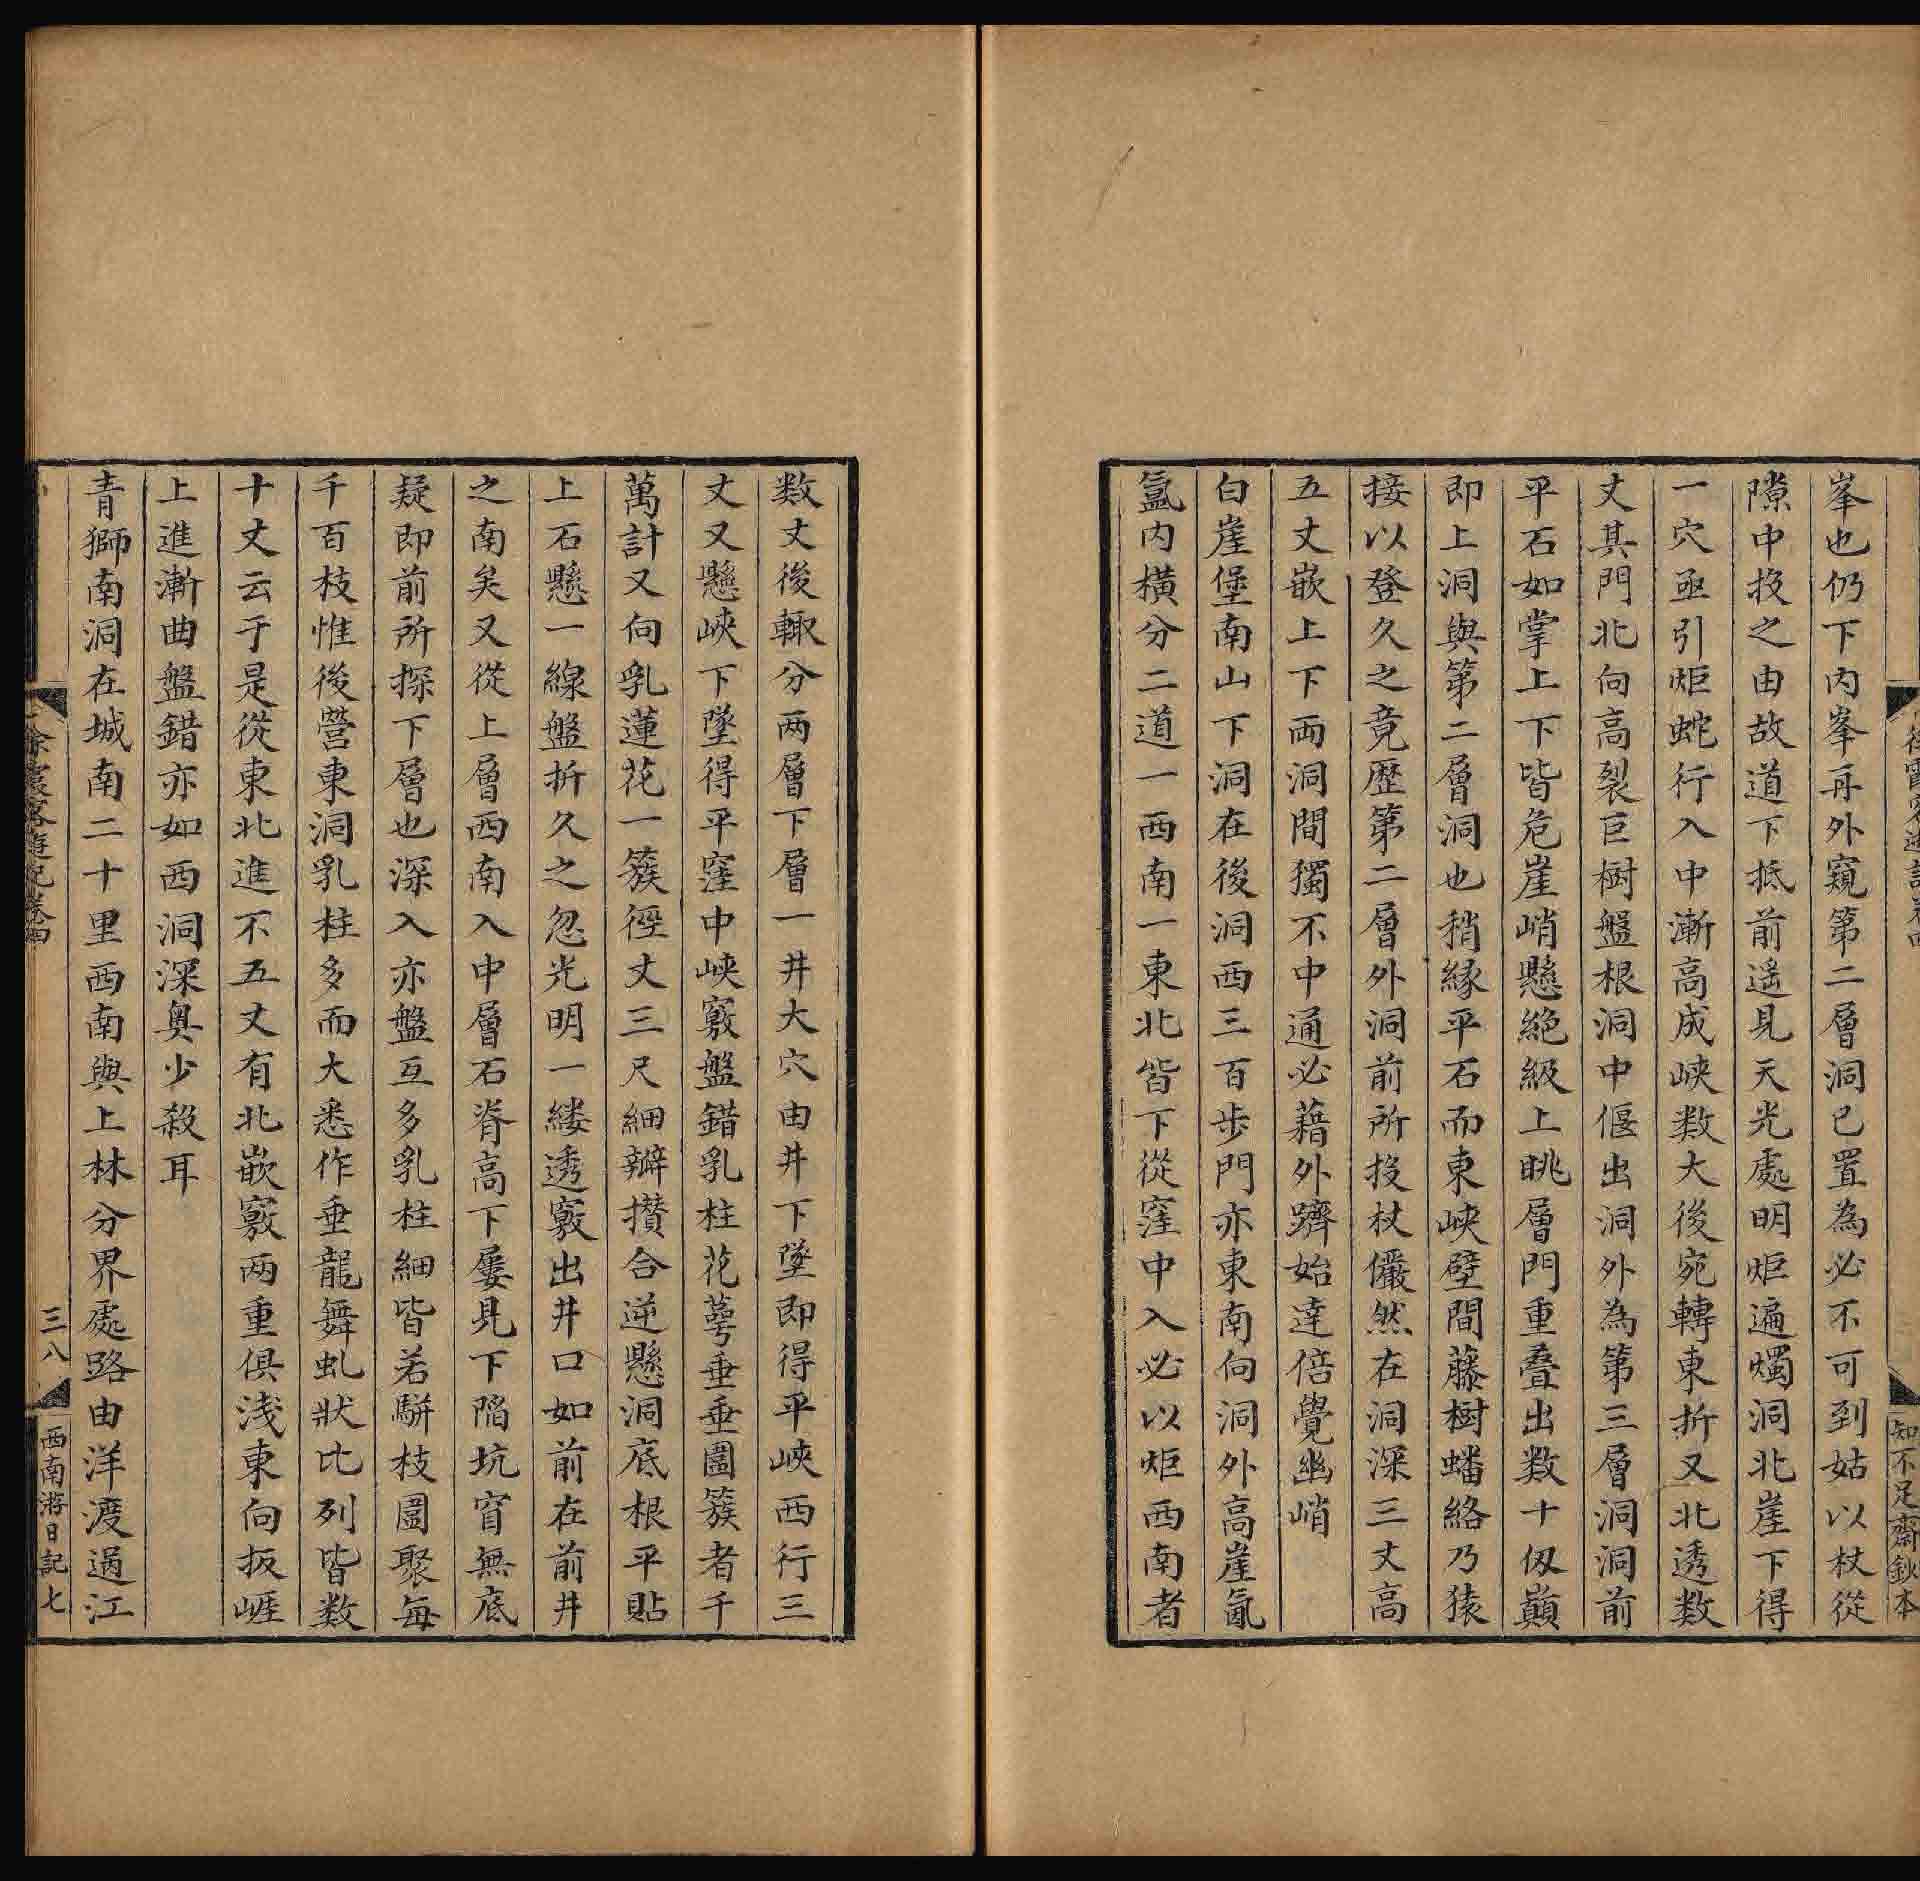 峯也仍下内峯再外窺第二層洞已置為必不可到姑以杖從
隙中投之由故道下抵前遥見天光處明炬遍燭洞北崖下得
一穴亟引炬蛇行入中漸高成峽数大後宛轉東折又北透数
丈其門北向高裂巨樹盤根洞中偃出洞外為第三層洞洞前
平石如掌上下皆危崖峭懸絶級上眺層門重叠出数十仭巔
即上洞與第二層洞也稍緣平石而東峽壁間藤樹蟠絡乃猿
接以登久之竟歷第二層外洞前所投杖儼然在洞深三丈高
五丈嵌上下両洞間獨不中通必藉外躋始達倍覺幽峭
白崖堡南山下洞在後洞西三百步門亦東南向洞外高崖氤
氲内横分二道一西南一東北皆下從窪中入必以炬西南者
数丈後輙分两層下層一井大穴由井下墜即得平峽西行三
丈又懸峽下墜得平窪中峽竅盤錯乳柱花萼垂垂圖簇者千
萬計又向乳蓮花一簇徑丈三尺細瓣攅合逆懸洞底根平貼
上石懸一線盤折久之忽光明一縷透竅出井口如前在前井
之南矣又從上層西南入中層石脊高下屡見下陷坑窅無底
疑即前所探下層也深入亦盤互多乳柱細皆若駢枝圖聚每
千百枝惟後營東洞乳柱多而大悉作垂龍舞虬狀比列皆数
十丈云于是從東北進不五丈有北嵌竅两重俱浅東向扳崕
上進漸曲盤錯亦如西洞深奥少殺耳
青獅南洞在城南二十里西南與上林分界處路由洋渡過江
三八
西南游日記七
知不足齋鈔本